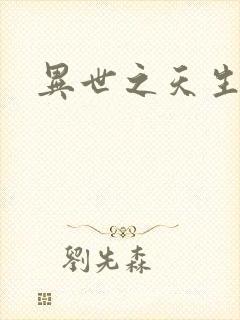 異世之天生
劉先森